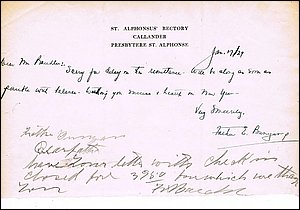 ST. ALPHONSUS' RECTORY
CALLANDER
PRESBYTERE ST. ALPHONSE
Jan. 17/39
Dear Mr
Sorry for delay in the remittance. Will be along as soon as
possible with balance. Wishing you success & health in New Year
Very Sincerely,
Father
Dear father
have your letter with check in
closed for 3950 for which we thank
you